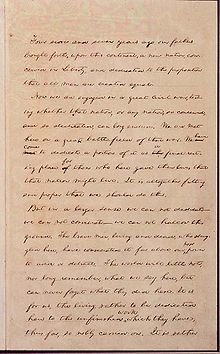 Four score and seven years ago our fathers
brought forth, upon this continent, a new nation, con-
ceived in Liberty, and dedicated to the proposition
that all men are created equal.
Now we are engaged in a great civil war, testing
whether that nation, or any nation, so conceived,
and so dedicated, can long endure. We are met
here on a great battle-field of that war. We have
come to dedicate a portion of it as a final rest-
ing place of for those who here gave their lives that
that nation might live. It is altogether fitting
and proper that we should do this.
But in a larger sense we can not dedicate—
we can not consecrate—we can not hallow this
ground. The brave men, living and dead, who strug-
gled here, have consecrated it far above our poor power
to add or detract. The world will little note,
nor long remember, what we say here, but
can never forget what they did here. It is
for us, the living, rather to be dedicated
here to the unfinished work which they have,
thus far, so nobly carried on. It is rather